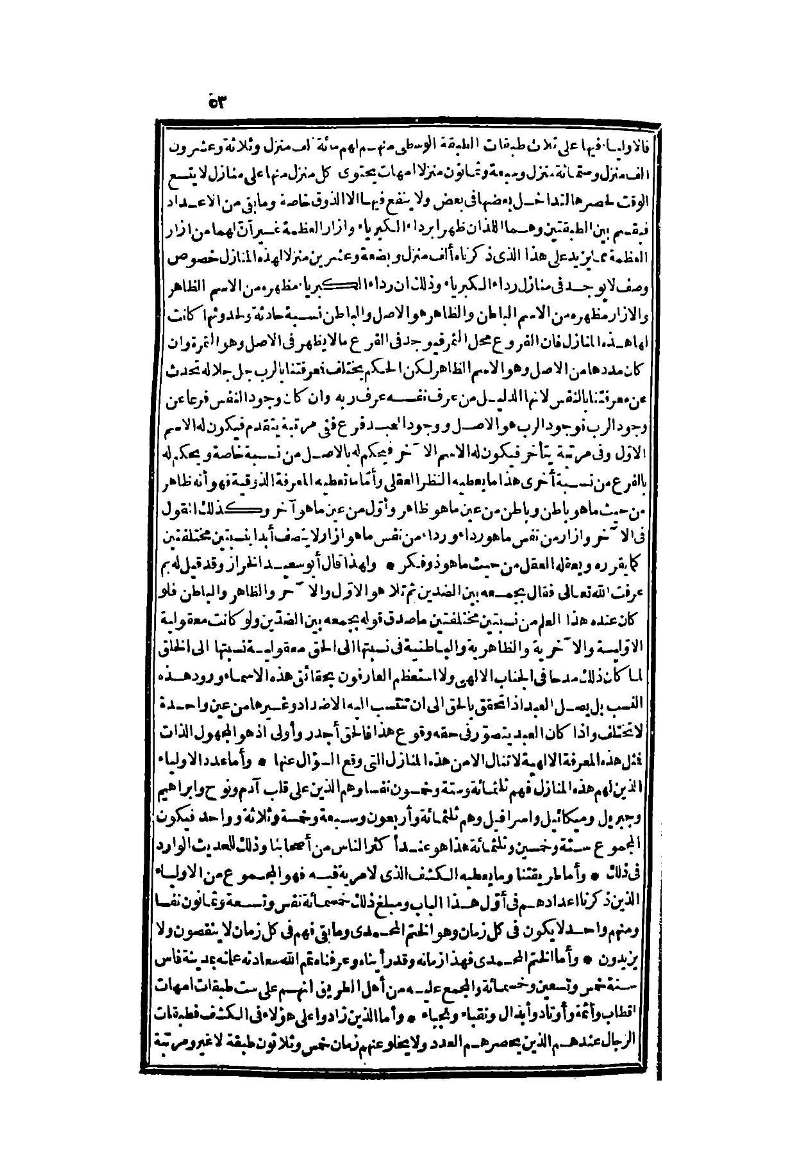 ٥٣
فالاولياء فيها على ثلاث طبقات الطبقة الوسطى منهم لهم مائة ألف منزل وثلاثة وعشرون
الف منزل وستمائة منزل وسبعة وثمانون منزلا أمهات يحتوى كل منزل منها على منازل لا يتسع
الوقت لحصرها لتداخل بعضها فى بعض ولا ينفع فيها الا الذوق خاصة وما بقى من الاعداد
فيقسم بين الطبقتين وهما اللذان ظهرا برداء الكبرياء وازار العظمة غير أن لهما من ازار
العظمة مما يزيد على هذا الذى ذكرناه ألف منزل وبضعة وعشرين منزلا لهذه المنازل خصوص
وصف لا يوجد فى منازل رداء الكبرياء وذلك ان رداء الكبرياء مظهره من الاسم الظاهر
والازار مظهره من الاسم الباطن والظاهر هو الاصل والباطن نسبة حادثة ولحدوثها كانت
لها هذه المنازل فان الفروع محل الثمر فيوجد فى الفرع مالا يظهر فى الاصل وهو الثمرة وان
كان مددها من الاصل وهو الاسم الظاهر لكن الحكم يختلف فمعرفتنا بالرب جل جلاله تحدث
عن معرفتنا بالنفس لانها الدليل من عرف نفسه عرف ربه وان كان وجود النفس فرعا عن
وجود الرب فوجود الرب هو الاصل ووجود العبد فرع ففى مرتبة يتقدم فيكون له الاسم
الاوّل وفى مرتبة يتأخر فيكون له الاسم الآخر فيحكم له بالاصل من نسبة خاصة ويحكم له
بالفرع من نسبة أخرى هذا ما يعطيه النظر العقلى وأمّا ما تعطيه المعرفة الذوقية فهو أنه ظاهر
من حيث ما هو باطن وباطن من عين ما هو ظاهر وأوّل من عين ما هو آخر وكذلك القول
فى الآخر وازار من نفس ما هو رداء ورداء من نفس ما هو ازار لا يتصف أبدا بنسبتين مختلفتين
كما يقرره ويعقله العقل من حيث ما هو ذو فكر • ولهذا قال أبو سعيد الخراز وقد قيل له بم
عرفت الله تعالى فقال بجمعه بين الضدين ثم تلا هو الاوّل والآخر والظاهر والباطن فلو
كان عنده هذا العلم من نسبتين مختلفتين ما صدق قوله بجمعه بين الضدّين ولو كانت معقولية
الاوّلية والآخرية والظاهرية والباطنية فى نسبتها الى الحق معقولية نسبتها الى الخلق
لما كان ذلك مدحا فى الجناب الالهى ولا استعظم العارفون بحقائق هذه الاسماء ورود هذه
النسب بل يصل العبد اذا تحقق بالحق الى ان تنتسب اليه الاضداد وغيرها من عين واحدة
لا تختلف واذا كان العبد يتصوّر فى حقه وقوع هذا فالحق أجدر وأولى اذ هو المجهول الذات
فمثل هذه المعرفة الالهية لا تنال الا من هذه المنازل التى وقع السؤال عنها • وأما عدد الاولياء
الذين لهم هذه المنازل فهم ثلثمائة وستة وخمسون نفسا وهم الذين على قلب آدم ونوح وابراهيم
وجبريل وميكائيل واسرافيل وهم ثلثمائة وأربعون وسبعة وخمسة وثلاثة وواحد فيكون
المجموع ستة وخمسين وثلثمائة هذا هو عند أكثر الناس من أصحابنا وذلك للحديث الوارد
فى ذلك • وأما طريقتنا وما يعطيه الكشف الذى لا مرية فيه فهو المجموع من الاولياء
الذين ذكرنا اعدادهم فى أوّل هذا الباب ومبلغ ذلك خمسمائة نفس وتسعة وثمانون نفسا
ومنهم واحد لا يكون فى كل زمان وهو الختم المحمدى وما بقى فهم فى كل زمان لا ينقصون ولا
يزيدون • وأما الختم المحمدى فهذا زمانه وقد رأيناه وعرفناه تمم الله سعادته علمته بمدينة فاس
سنة خمس وتسعين وخمسمائة والمجمع عليه من أهل الطريق انهم على ست طبقات امهات
اقطاب وأئمة وأوتاد وأبدال ونقباء ونجباء • وأما الذين زادوا على هؤلاء فى الكشف فطبقات
الرجال عندهم الذين يحصرهم العدد ولا يخلو عنهم زمان خمس وثلاثون طبقة لا غير ومرتبة